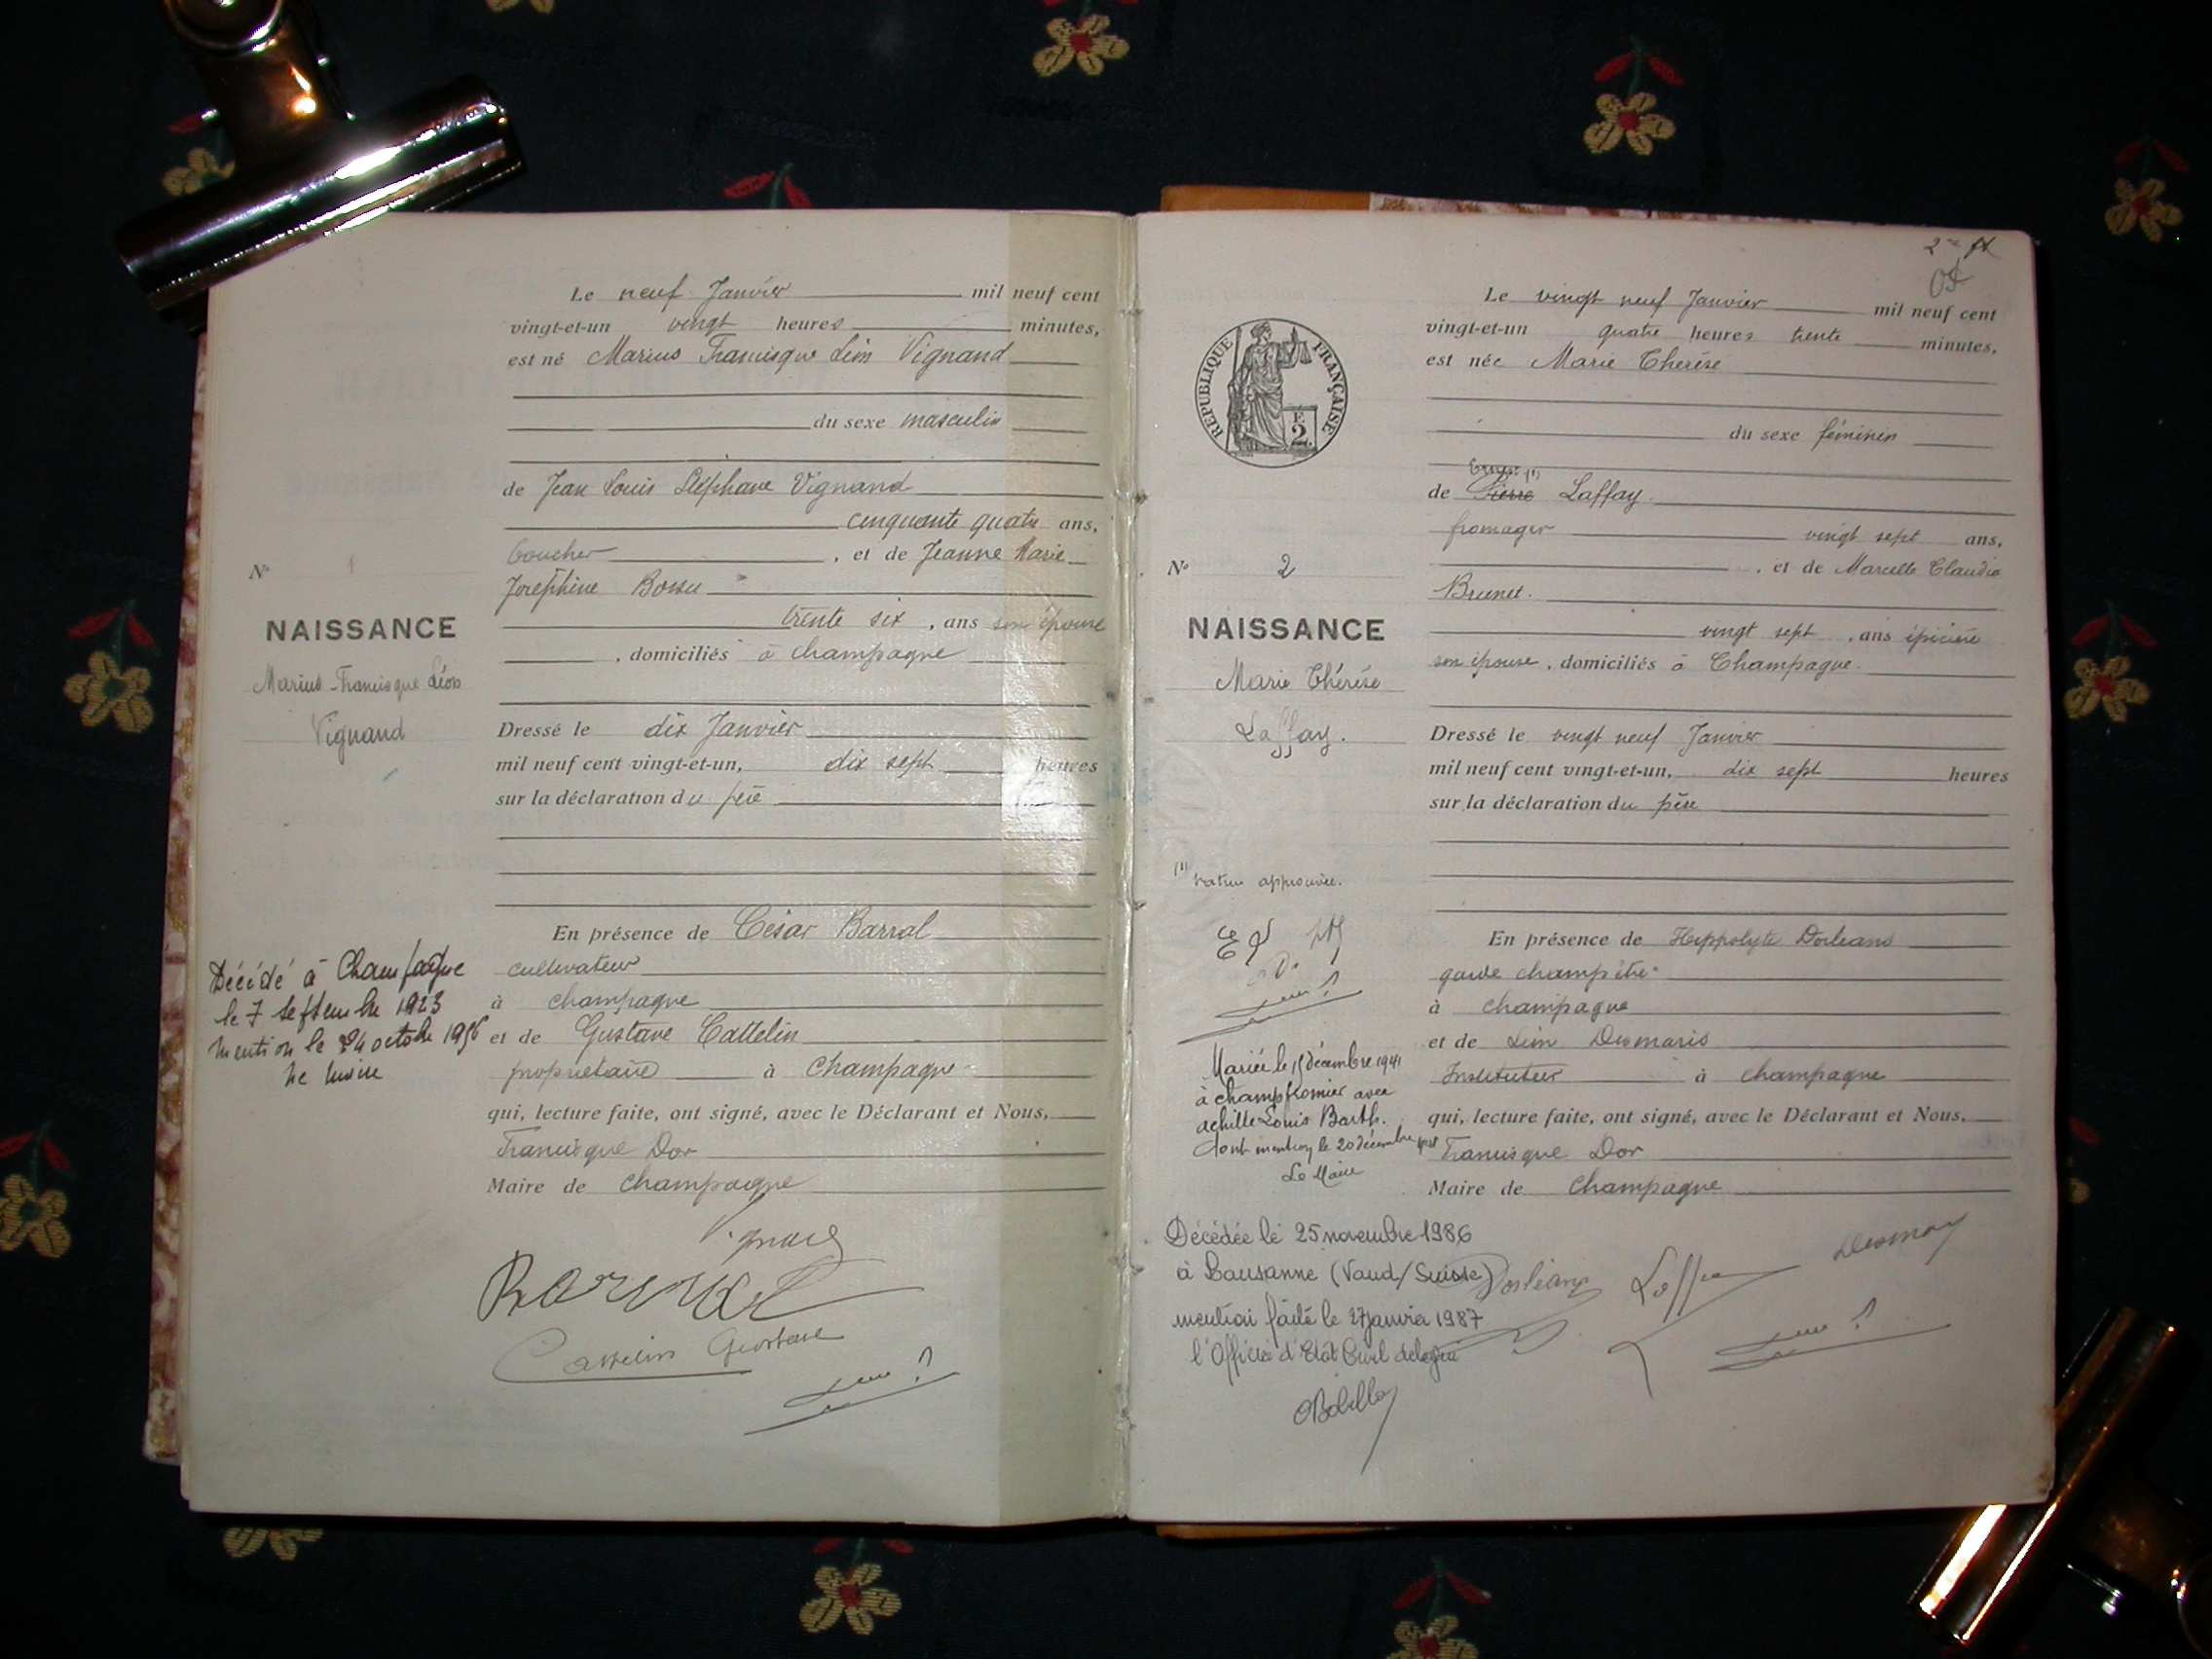 Le neuf Janvier mil neuf cent
vingt-et-un vingt heures minutes,
est né Marius Francisque Léon Vignand
du sexe masculin
de Jean Louis Stéphane Vignand
cinquante quatre ans,
boucher , et de Jeanne Marie
Joséphine Bossu
trente six , ans son épouse
, domiciliés à Champagne
Dressé le dix Janvier
mil neuf cent vingt-et-un, dix sept heures
sur la déclaration du père
En présence de César Barral
cultivateur
à champagne
et de Gustave Cattelin
propriétaire à Champagne
qui, lecture faite, ont signé, avec le Déclarant et Nous,
Francisque Dor
Maire de Champagne
Nº 1
NAISSANCE
Marius-Francisque Léon
Vignand
Décédé à Champagne
le 7 septembre 1923
mention le 24 octobre 1956
Cattelin Gustave
2
Le vingt neuf Janvier mil neuf cent
vingt-et-un quatre heures trente minutes,
est née Marie Thérèse
du sexe féminin
(1)
de Pierre Laffay
fromager vingt sept ans,
, et de Marcelle Claudia
Brunet.
vingt sept , ans épicière
son épouse , domiciliés à Champagne
Dressé le vingt neuf Janvier
mil neuf cent vingt-et-un, dix sept heures
sur la déclaration du père
En présence de Hippolyte Dorléans
garde champêtre
à champagne
et de Léon Desmaris
Instituteur à champagne
qui, lecture faite, ont signé, avec le Déclarant et Nous,
Francisque Dor
Maire de Champagne
RÉPUBLIQUE FRANÇAISE
2
Nº 2
NAISSANCE
Marie Thérèse
Laffay.
(1) rature approuvée.
Mariée le 15 décembre 1941
à Champfromier avec
Achille Louis Barth.
dont mention le 20 décembre 1941
Le Maire
Décédée le 25 novembre 1986
à Lausanne (Vaud/Suisse)
mention faite le 27 janvier 1987
l'Officier d'Etat Civil délégué
Dorléans